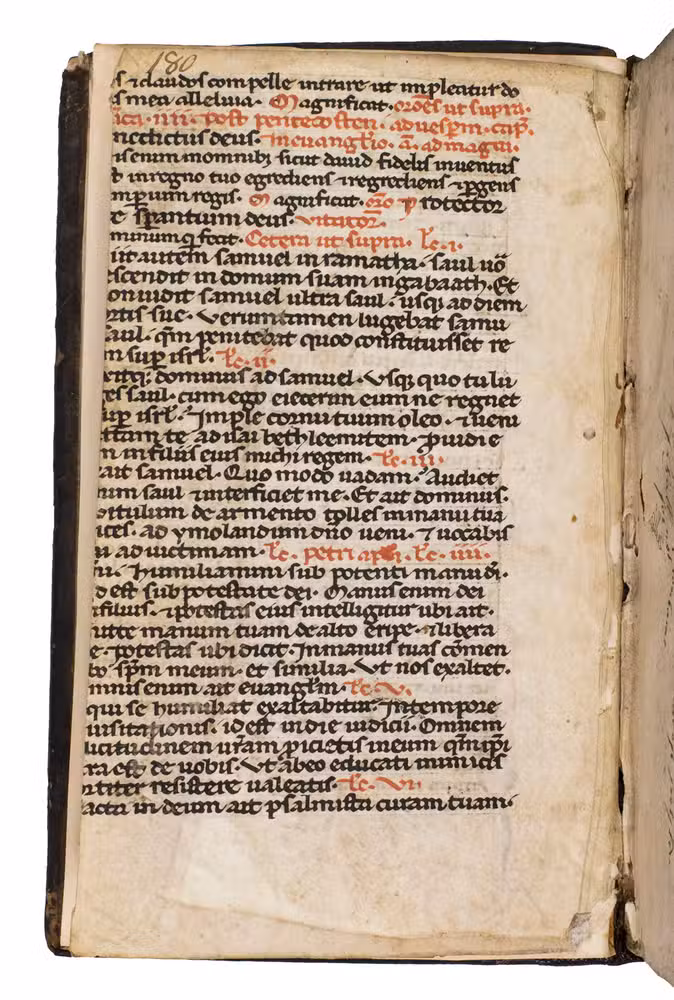 180
s & claudos compelle intrare ut impleatur do
s mea alleluia. Magnificat. orões ut supra.
ica. iiii. post pentecosten. ad uesp̃m. cap̃.
nedictus deus. In euangl̃io. a. ad magñi.
is enim in omnibꝫ sicut dauid fidelis inuentus
t in regno tuo egrediens & regrediens & ꝑgens
imperium regis. Magnificat. orõ Protector
te sperantium deus. Inuitatoř.
minum q̃ fecit. Cetera ut supra. l̃c. i.
iit autem samuel in ramatha. saul uõ
escendit in domum suam in gabaath. Et
on uidit samuel ultra saul. usqꝫ ad diem
ortis sue. Verumtamen lugebat samu
saul. qm̃ penitebat quod constituisset re
m suꝑ isrl̃. l̃c. ii.
xitqꝫ dominus ad samuel. Vsqꝫ quo tu lu
es saul. cum ego eiecerim eum ne regnet
suꝑ isrl̃. Imple cornu tuum oleo. & ueni
ittam te ad isai bethleemitem. Prouidi e
m in filiis eius michi regem. l̃c. iii.
ait samuel. Quo modo uadam. Audiet
nim saul & interficiet me. Et ait dominus.
uitulum de armento tolles in manu tua
ices. ad ymolandum dño ueni. & uocabis
i ad uictimam. l̃c. petri apl̃i. l̃c. iiii.
r̃i. Humiliamini sub potenti manu di.
id est sub potestate dei. Manus enim dei
filius. & potestas eius intelligitur ubi ait.
mitte manum tuam de alto eripe. & libera
e. potestas ubi dicit. In manus tuas cõmen
bo sp̃m meum. et similia. Vt nos exaltet.
mnis enim ait euangl̃m. l̃c. V.
qui se humiliat exaltabitur. In tempore
uisitationis. id est in die iudicii. Omnem
licitudinem ur̃am proicietis in eum qm̃ ip̃i
ra est de uobis. Vt ab eo educati inimicis
rtiter resistere ualeatis. l̃c. VI
acta in deum ait psalmista curam tuam.